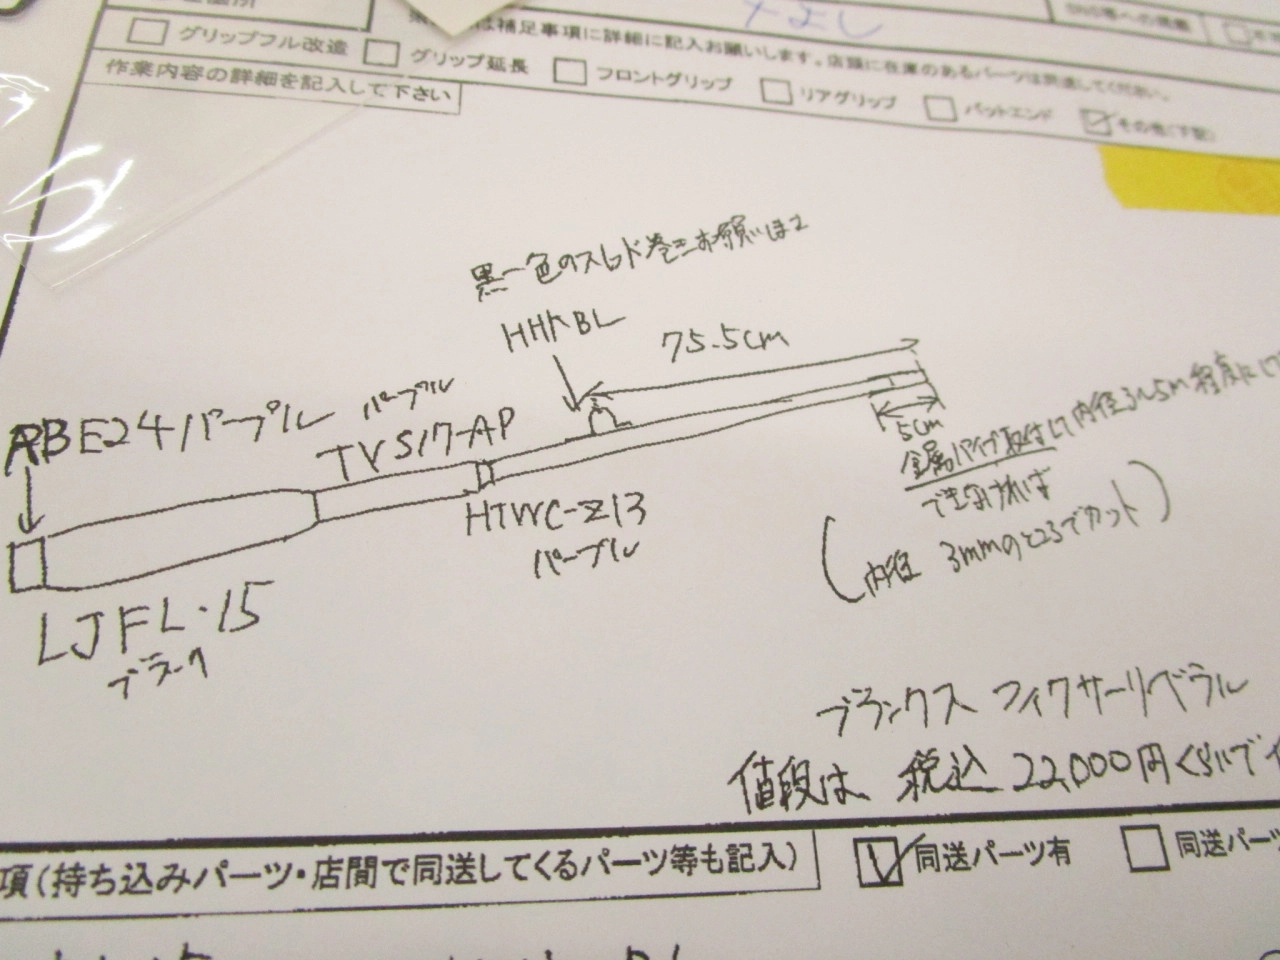 は補足事項に詳細に記入お願いします。店頭に在庫のあるパーツは同送してください。
グリップフル改造 グリップ延長 フロントグリップ リアグリップ バットエンド その他(下記)
作業内容の詳細を記入して下さい
黒一色のスレッド巻きお願いします
HHKBL
75.5cm
RBE24パープル
パープル
TVS17-AP
5cm
金属パイプ取付して内径3~5m程度にして
できなければ
(内径 3mmのところでカット)
HTWC-Z13
パープル
LJFL-15
ブラック
ブランクス フィクサーリベラル
値段は 税込 22,000円くらいで
項(持ち込みパーツ・店間で同送してくるパーツ等も記入) 同送パーツ有 同送パーツ